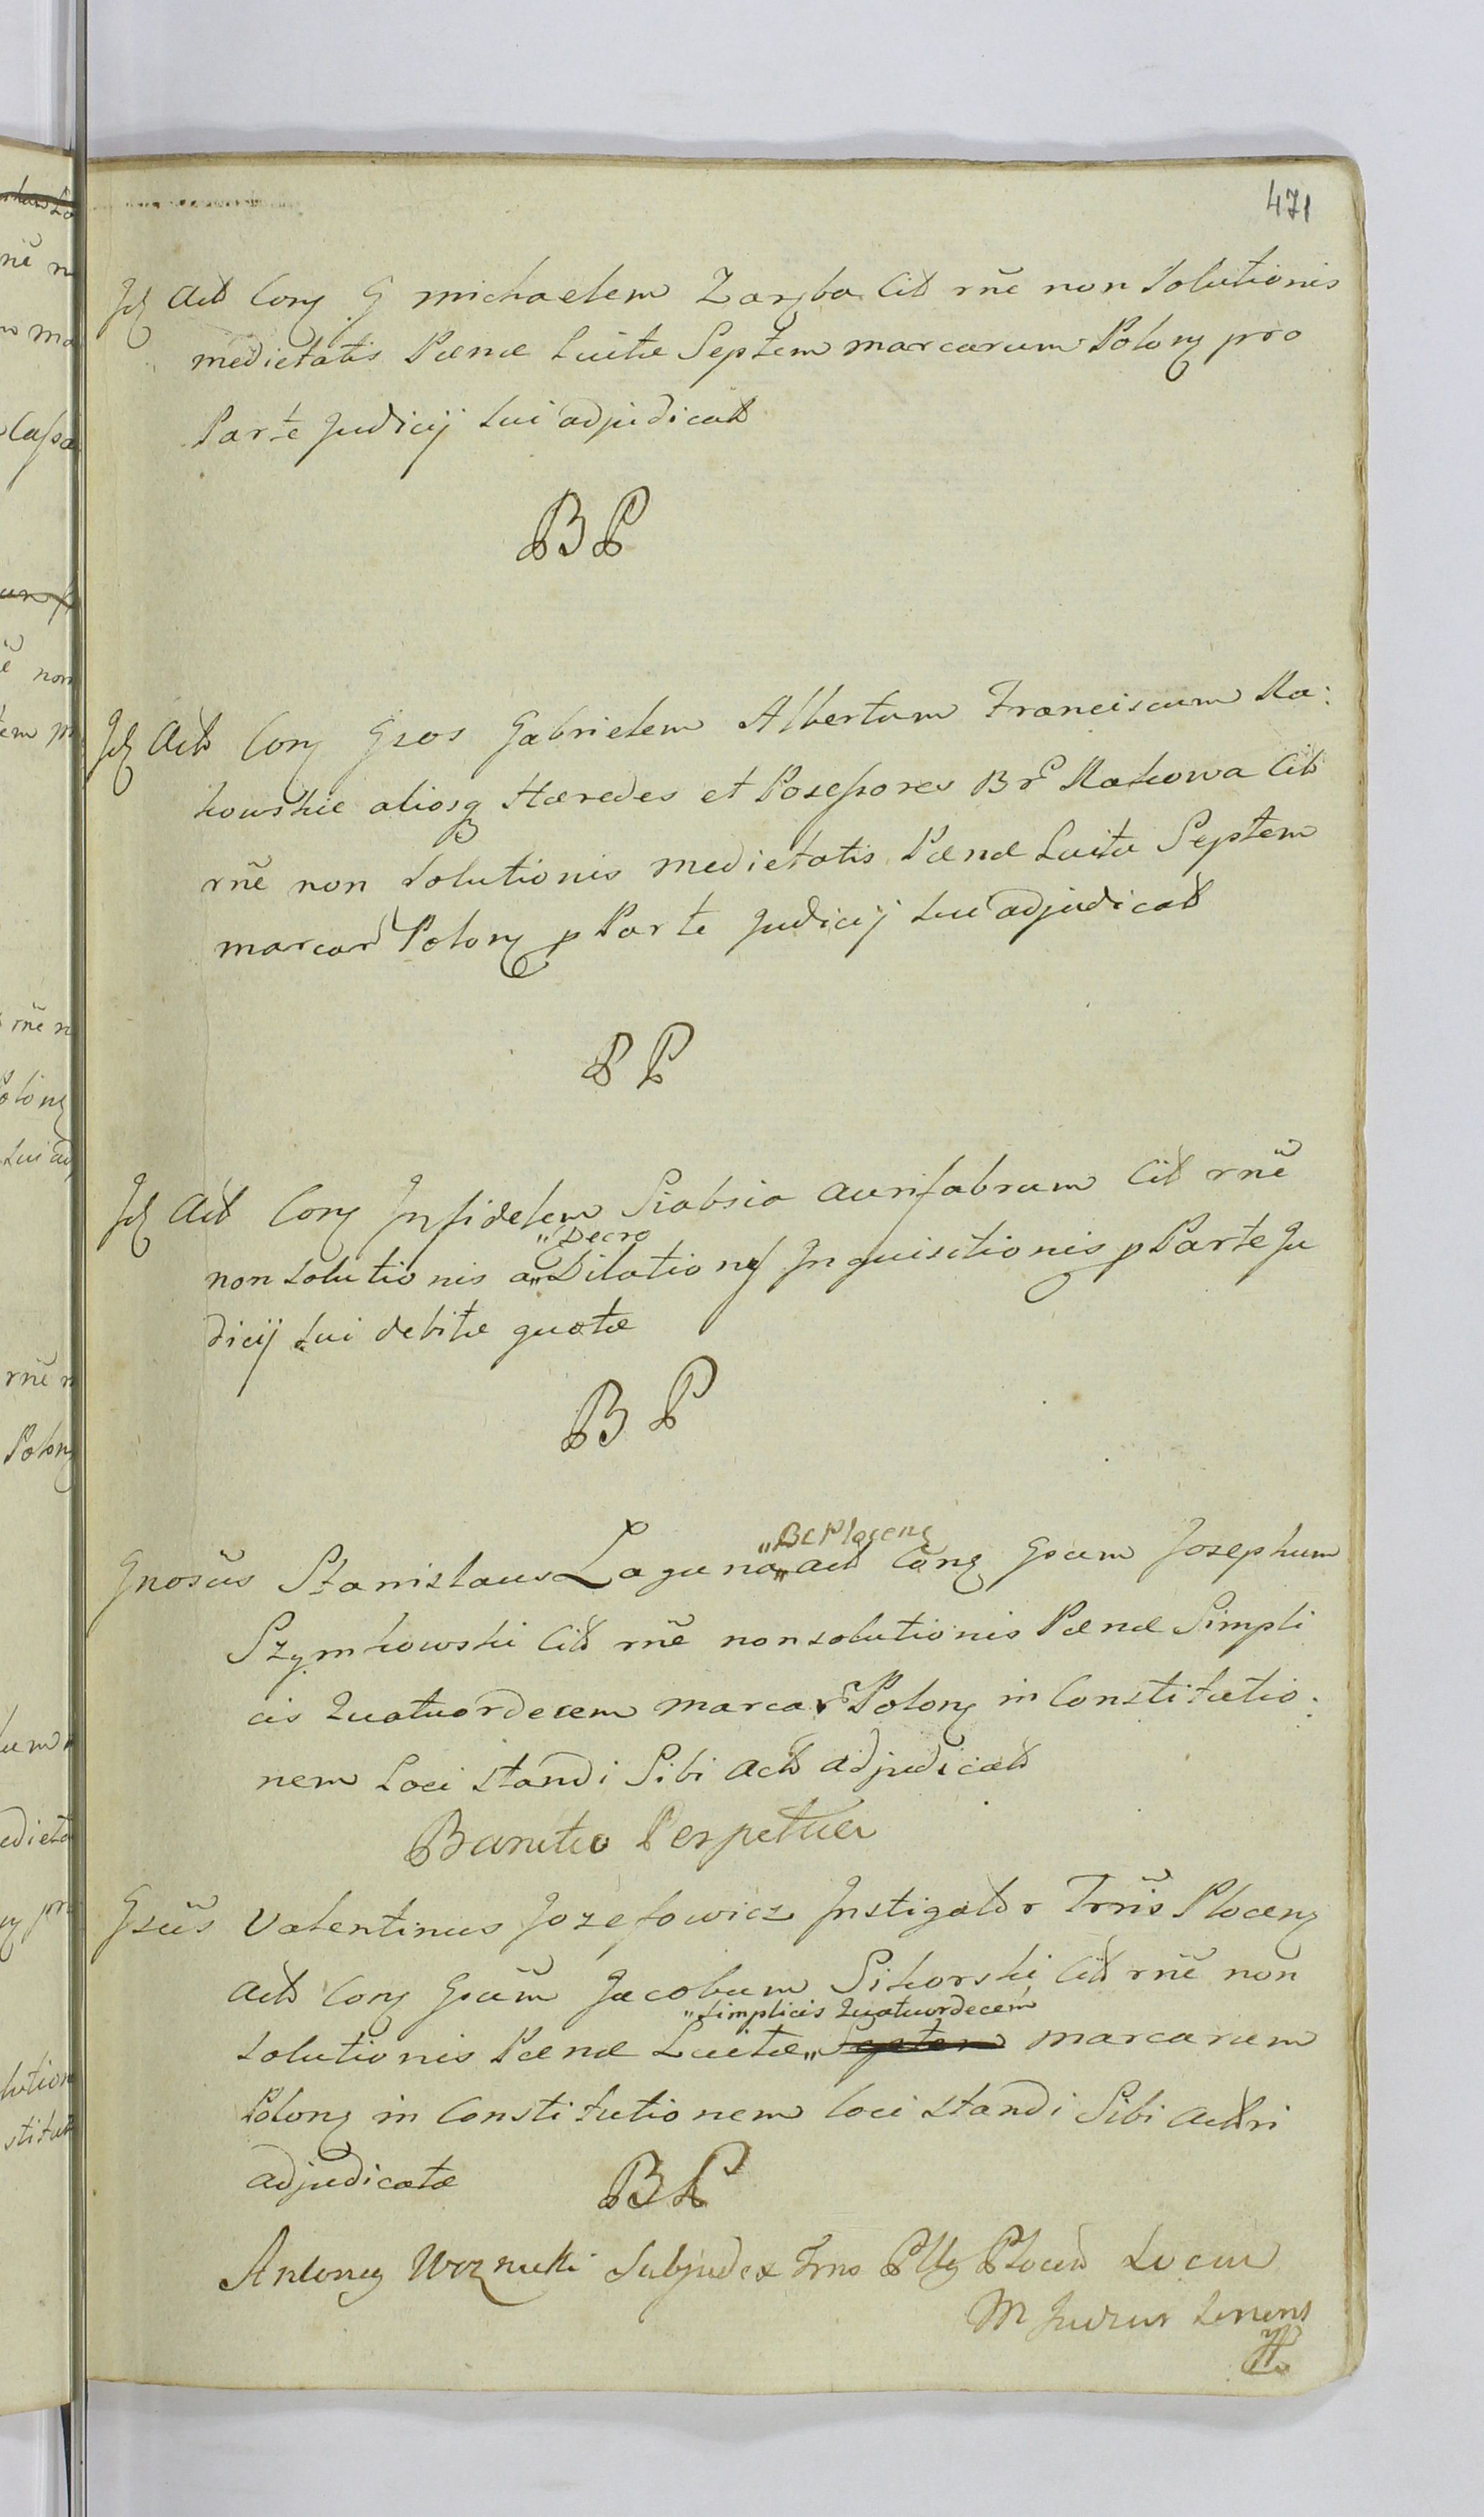 471
Id Act Con G michaelem Zaręba Cit rne non Solutionis
medietatis Pænæ Luitæ Septem marcarum Polon pro
Parte Judicij Sui adjudicat
B P
Id Act Con Gsos Gabrielem Albertum Franciscum Ra:
kowskie aliosq Hæredes et Possessores Br Rakowa Cit
rne non Solutionis medietatis Pænæ Luitæ Septem
marcar Polon p Parte Judicij sui adjudicat
P P
Id Act Con Infidelem Siabsia aurifabrum Cit rne
„Decro
non solutionis a „Dilation Inquisitionis p Parte Ju
dicij sui debitæ quotæ
B P
„BCPlocens
Gnosus Stanislaus Laguna „act Con Gsum Josephum
Szymkowski Cit rne non solutionis Pænæ Simpli
cis Quatuordecem marcar Polon in Constitutio:
nem Loci standi Sibi act adjudicat
Banitio Perpetua
Gsus Valentinus Jozefowicz Instigator Trris Plocens
act Con Gsum Jacobum Sikorski Cit rne non
„Simplicis Quatuordecem
solutionis Pænæ Luitæ „Septem marcarum
Polon in Constitutionem loci standi Sibi actri
adjudicatæ B P
Subjudex Locum
M